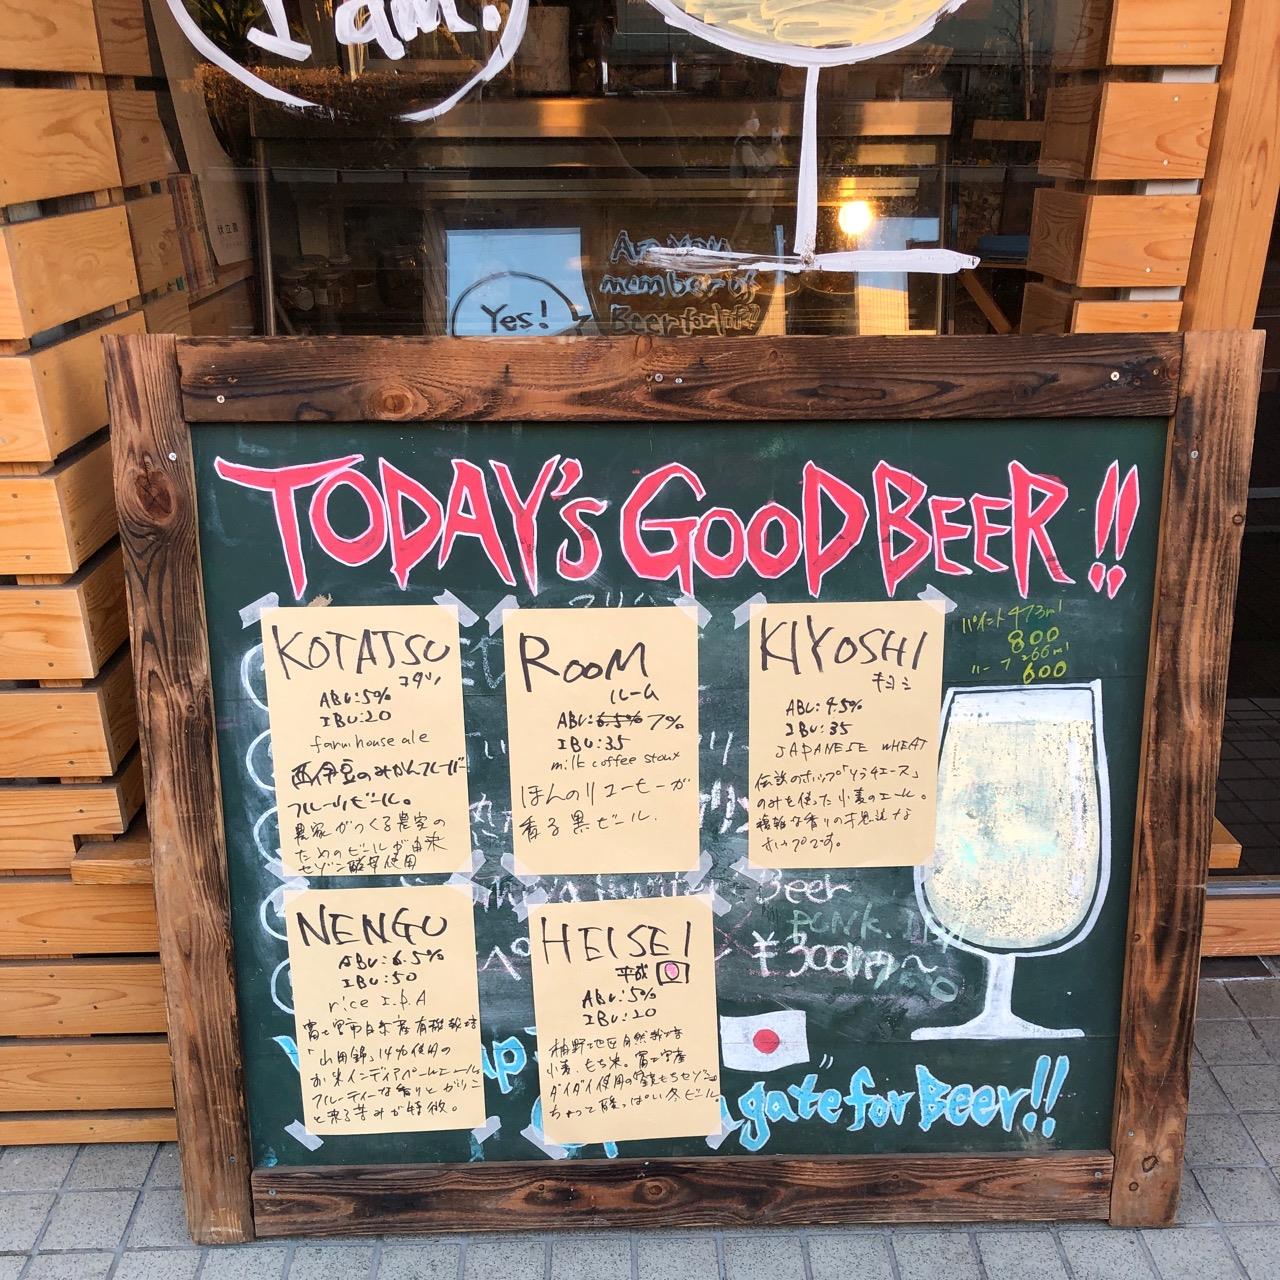 I am.
Are you
member of
Beer for life?
Yes!
TODAY'S GOOD BEER!!
パイント473ml
800
ハーフ266ml
600
KOTATSU
コタツ
ABV:5%
IBU:20
farmhouse ale
西伊豆のみかんフレーバー
フルーツビール。
農家がつくる農家の
ためのビールが由来
セゾン酵母使用
ROOM
ルーム
ABV:6.5% 7%
IBU:35
milk coffee stout
ほんのりコーヒーが
香る黒ビール.
KIYOSHI
キヨシ
ABV:4.5%
IBU:35
JAPANESE WHEAT
伝説のホップ「ソラチエース」
のみを使った小麦のエール。
複雑な香りの不思議な
タイプです。
NENGU
ABV:6.5%
IBU:50
rice I.P.A
富士宮市白糸産有機栽培
「山田錦」14%使用の
お米インディアペールエール
フルーティーな香りとガツン
と来る苦みが特徴。
HEISEI
平成
ABV:5%
IBU:20
柚野地区自然栽培
小麦、もち米。富士宮産
ダイダイ使用の餅もちセゾン
ちょっと酸っぱい冬ビール。
Beer
PUNK. IPA
¥300円~
gate for Beer!!